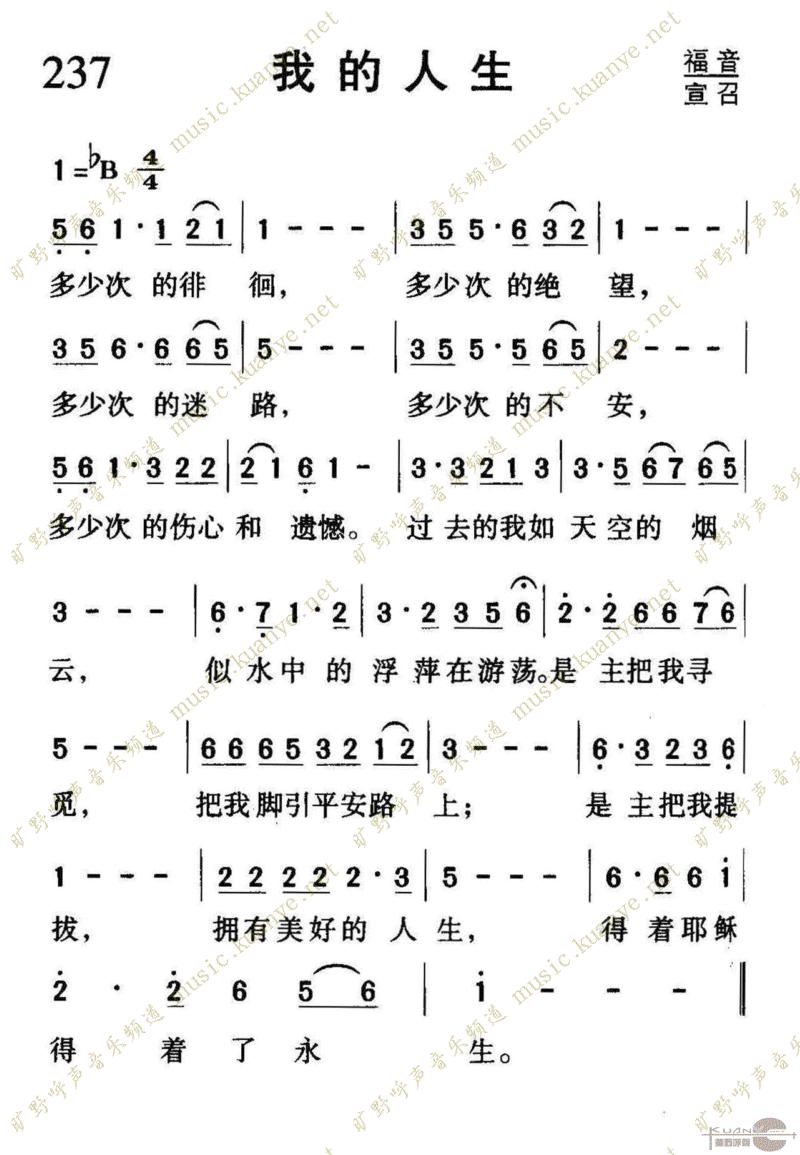 237 我的人生 福音
宣召
1=♭B 4/4
5 6 1·1 2 1 | 1 - - - | 3 5 5·6 3 2 | 1 - - - |
多少次 的徘 徊, 多少次 的绝 望,
3 5 6·6 6 5 | 5 - - - | 3 5 5·5 6 5 | 2 - - - |
多少次 的迷 路, 多少次 的不 安,
5 6 1·3 2 2 | 2 1 6 1 - | 3·3 2 1 3 | 3·5 6 7 6 5 |
多少次 的伤心 和 遗憾。 过 去的我如 天空的 烟
3 - - - | 6·7 1·2 | 3·2 3 5 6 | 2·2 6 6 7 6 |
云, 似 水中 的 浮 萍在游荡。是 主把我寻
5 - - - | 6 6 6 5 3 2 1 2 | 3 - - - | 6·3 2 3 6 |
觅, 把我脚引平安路 上; 是 主把我提
1 - - - | 2 2 2 2 2·3 | 5 - - - | 6·6 6 1 |
拔, 拥有美好的 人 生, 得 着耶稣
2 · 2 6 5 6 | 1 - - - ‖
得 着 了 永 生。
旷野呼声音乐频道 music.kuanye.net